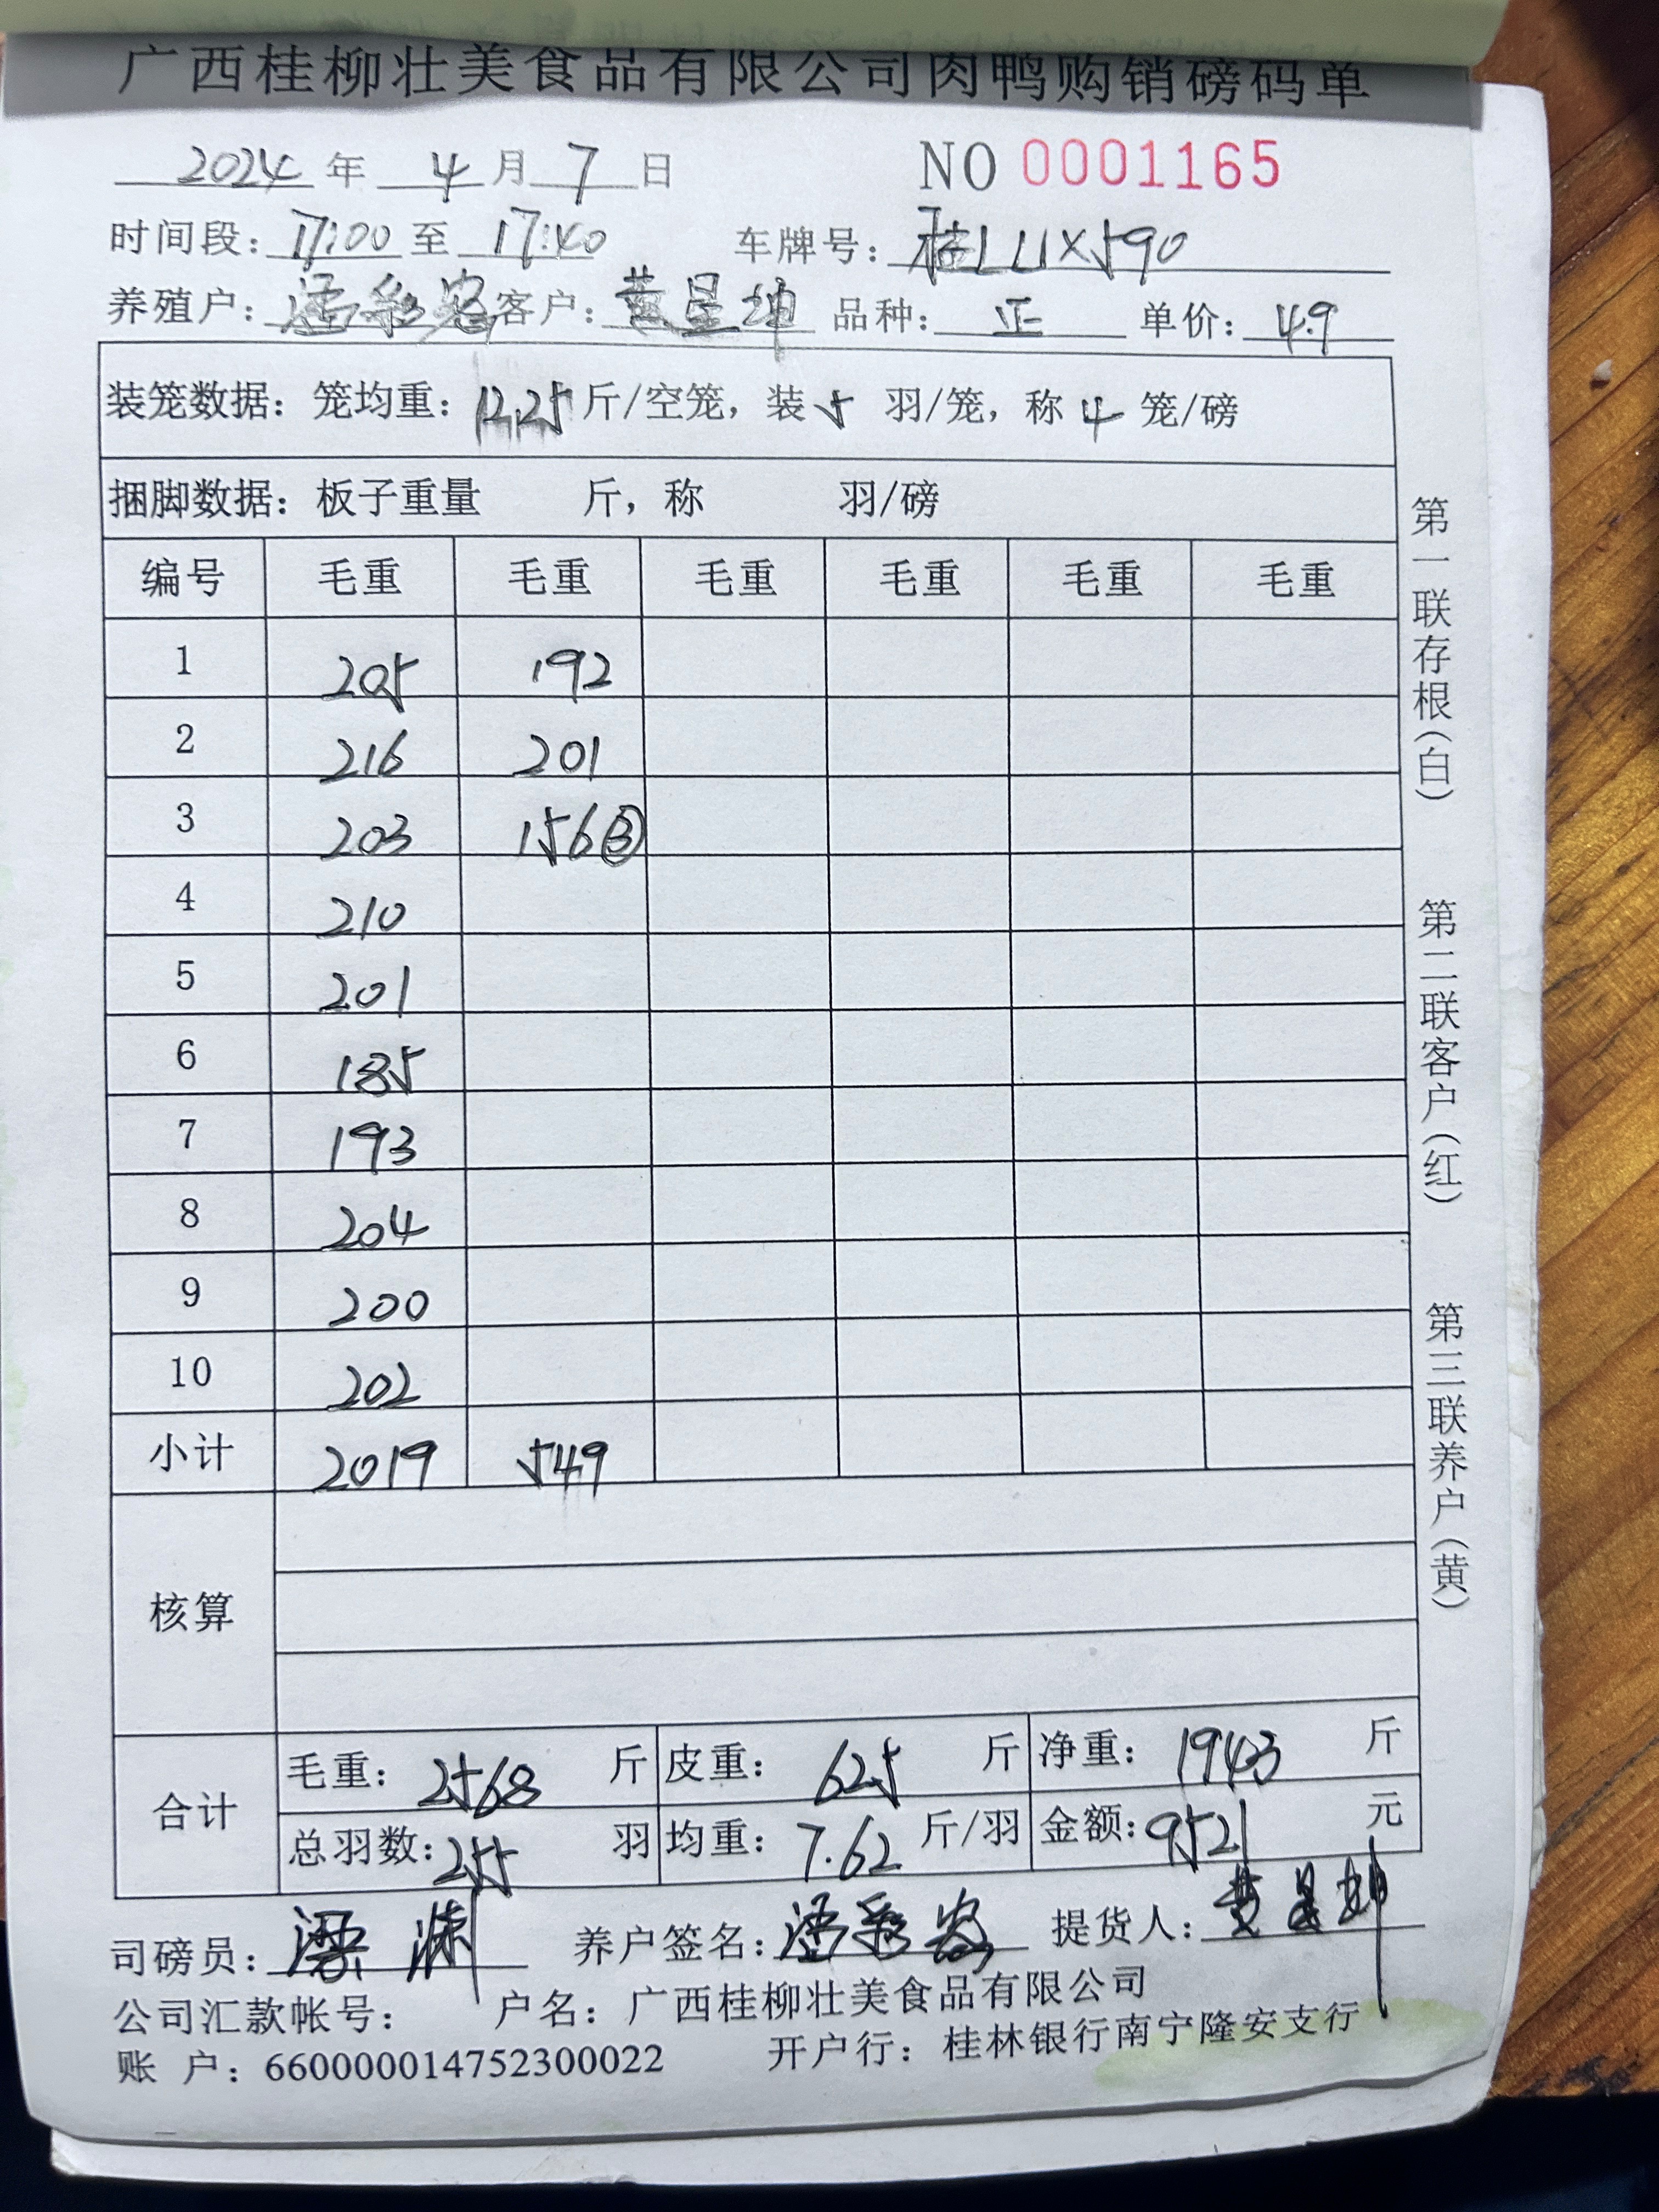 广西桂柳壮美食品有限公司肉鸭购销磅码单
2024年 4月7日 NO 0001165
时间段：17:00至 17:40 车牌号：桂LUX590
养殖户： 客户：黄星坤 品种：正 单价：4.9
装笼数据：笼均重：12.25斤/空笼，装5羽/笼，称4笼/磅
捆脚数据：板子重量 斤，称 羽/磅
编号 毛重 毛重 毛重 毛重 毛重 毛重
1 205 192
2 216 201
3 203 156③
4 210
5 201
6 185
7 193
8 204
9 200
10 202
小计 2019 549
核算
合计
毛重：2568 斤 皮重：625 斤 净重：1943 斤
总羽数：255 羽 均重：7.62 斤/羽 金额：9521 元
司磅员：梁 养户签名： 提货人：黄星坤
公司汇款帐号： 户名：广西桂柳壮美食品有限公司
账 户：660000014752300022 开户行：桂林银行南宁隆安支行
第一联存根（白）
第二联客户（红）
第三联养户（黄）